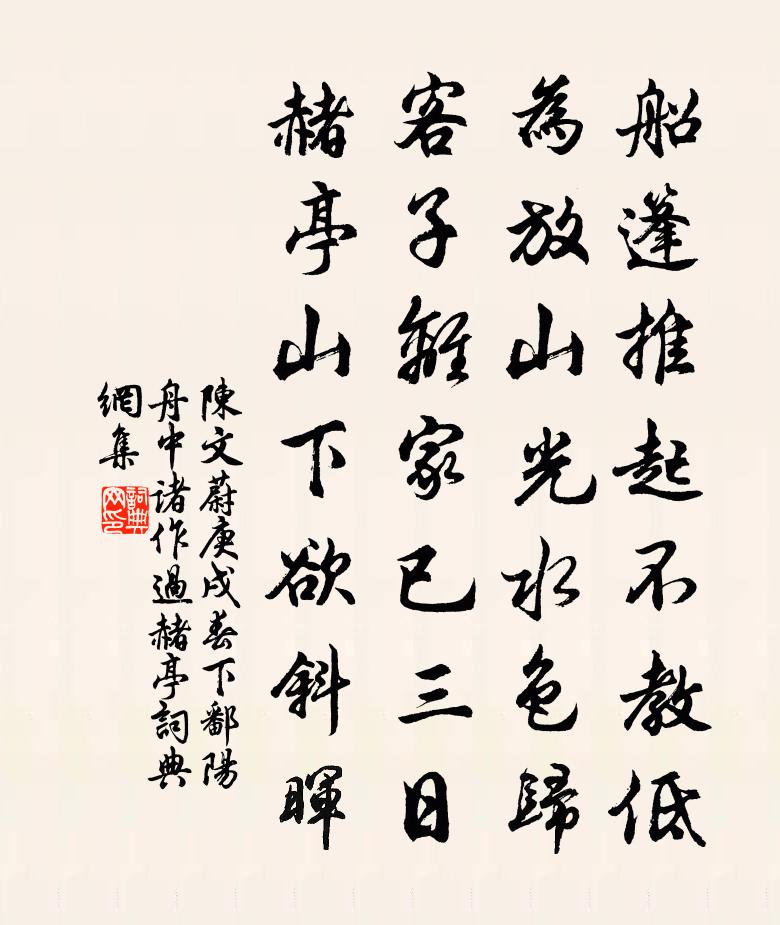 船篷推起不教低
為放山光水色歸
客子離家已三日
赭亭山下欲斜暉
陳文蔚庚戌春下鄱陽
舟中諸作過赭亭詞典
網集
詞典
网印